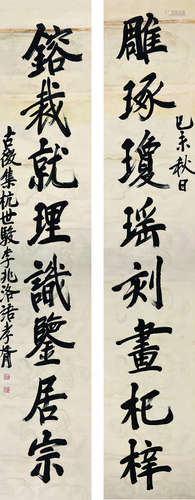 己未秋日
雕琢瓊瑶刻畫杞梓
鎔裁就理識鑒居宗
古微集杭世駿李兆洛語孝胥